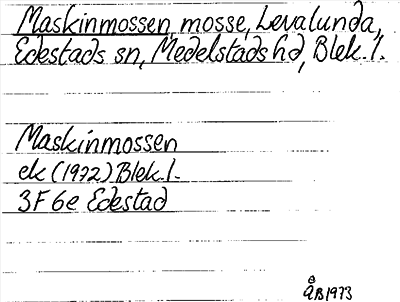 Maskinmossen mosse, Levalunda,
Edestads sn, Medelstads hd, Blek. l.
Maskinmossen
ek (1972) Blek. l.
3F 6e Edestad
ÅB 1973